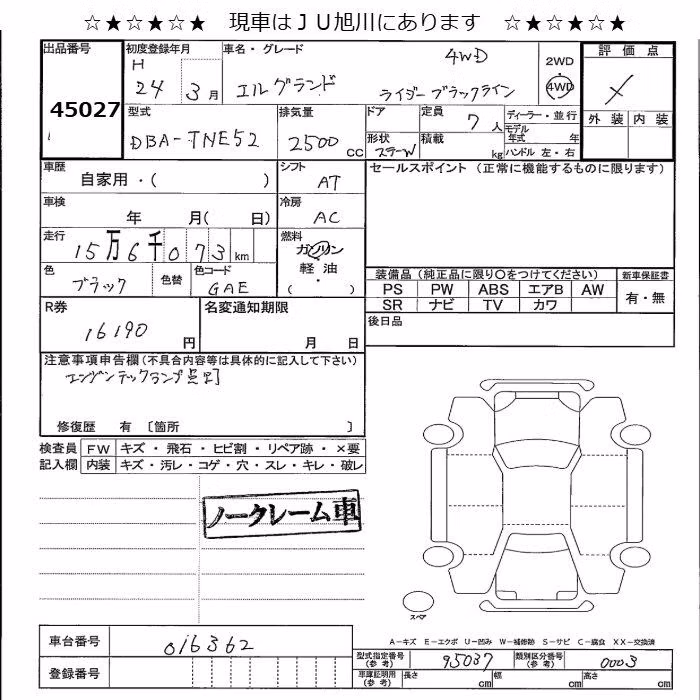 ☆★☆★☆★ 現車はＪＵ旭川にあります ☆★☆★☆★
出品番号 初度登録年月 車名・グレード 4WD 2WD 評価点
H 24 3月 エルグランド ライダーブラックライン 4WD
45027 外装 内装
型式 排気量 ドア 定員 7人 ディーラー・並行
DBA-TNE52 2500cc 形状 積載 kg モデル年式 年
ハンドル 左・右
車歴 自家用・( ) シフト AT セールスポイント (正常に機能するものに限ります)
車検 年 月( 日) 冷房 AC
走行 15万6千073km 燃料 ガソリン
軽油
・
( )
色 ブラック 色替 色コード GAE
装備品 (純正品に限り〇をつけてください) 新車保証書
PS PW ABS エアB AW 有・無
SR ナビ TV カワ
R券 16190円 名変通知期限 月 日 後日品
注意事項申告欄 (不具合内容等は具体的に記入して下さい)
エンジンチェックランプ点灯
修復歴 有 〔箇所 〕
検査員 FW キズ・飛石・ヒビ割・リペア跡・×要
記入欄 内装 キズ・汚レ・コゲ・穴・スレ・キレ・破レ
ノークレーム車
スペア
A-キズ E-エクボ U-凹み W-補修跡 S-サビ C-腐食 XX-交換済
車台番号 016362
登録番号
型式指定番号 (参考) 95037 類別区分番号 (参考) 0003
車庫証明用 (参考) 長さ cm 幅 cm 高さ cm